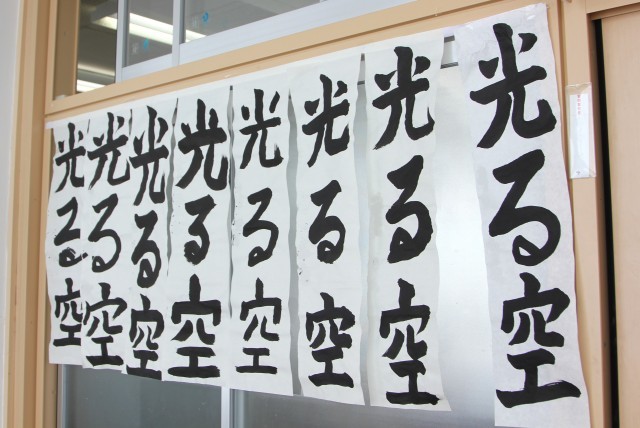 光る空
光る空
光る空
光る空
光る空
光る空
光る空
光る空